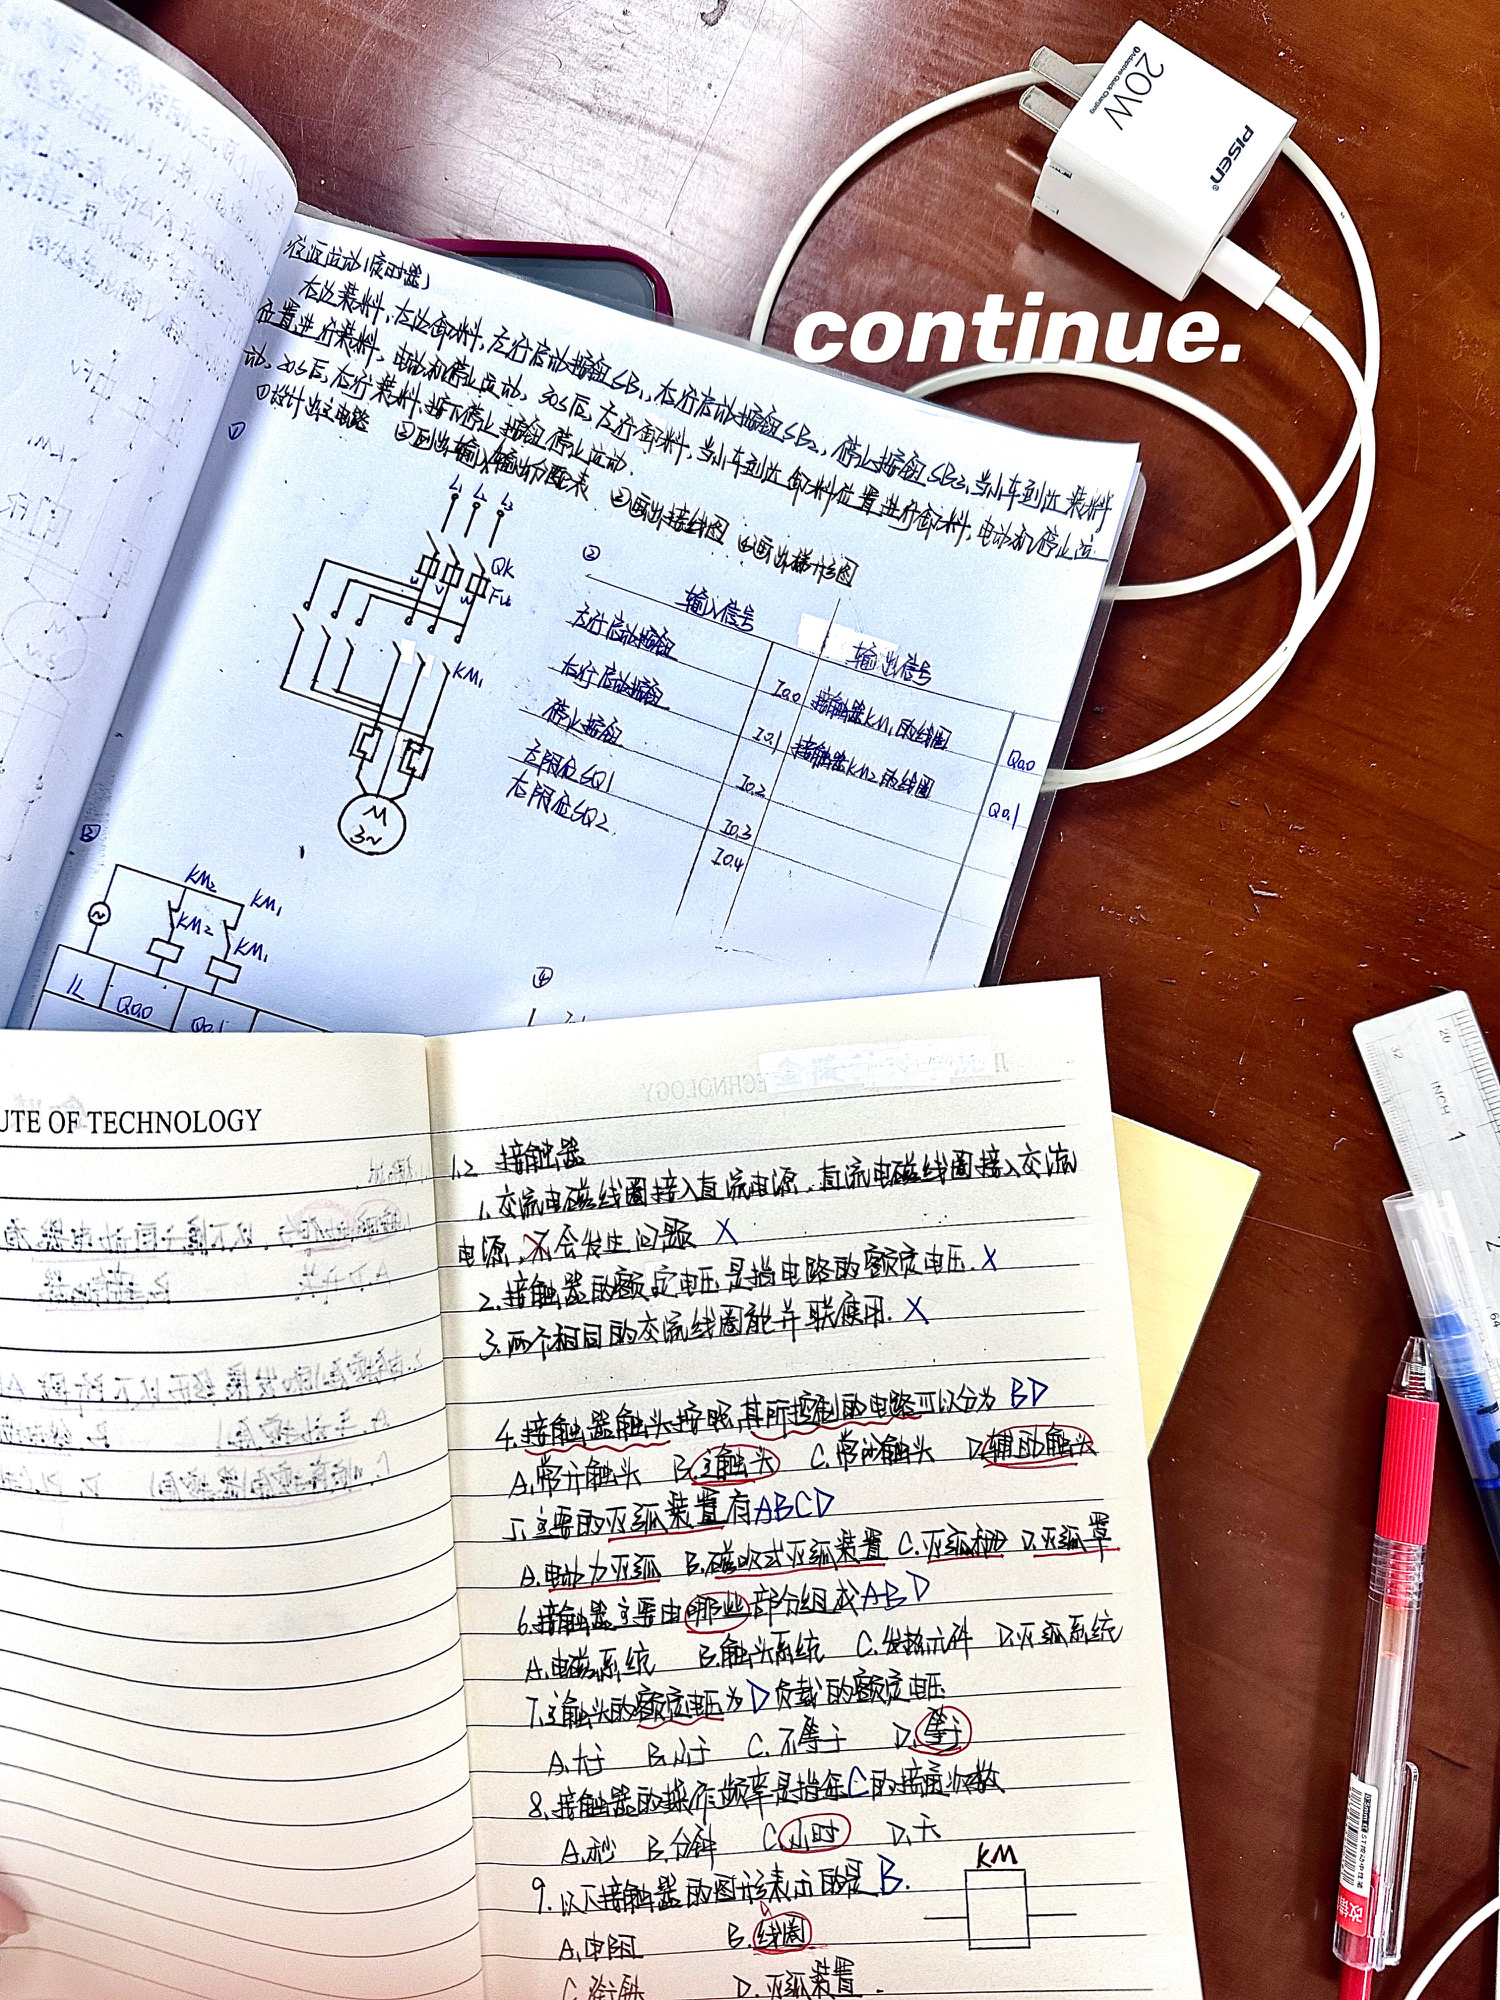 20W
Adaptive Quick Charging
PISEN
continue.
左边装料,右边卸料,左行启动按钮SB1,右行启动按钮SB2,停止按钮SB3,当小车到达装料
位置进行装料,电动机停止运动,30S后,右行卸料,当小车到达卸料位置进行卸料,电动机停止运
动,20S后,左行装料,按下停止按钮停止运动.
①设计出主电路 ②列出输入输出分配表 ③画出接线图 ④画出梯形图
①
L1 L2 L3
QK
FU
U V W
KM1
M
3~
②
输入信号 输出信号
左行启动按钮 I0.0 接触器KM1的线圈 Q0.0
右行启动按钮 I0.1 接触器KM2的线圈 Q0.1
停止按钮 I0.2
左限位SQ1 I0.3
右限位SQ2. I0.4
③
KM2 KM1
KM2 KM1
1L Q0.0 Q0.1
④
UTE OF TECHNOLOGY
1.2 接触器
1、交流电磁线圈接入直流电源,直流电磁线圈接入交流
电源,不会发生问题 X
2、接触器的额定电压是指电路的额定电压. X
3、两个相同的交流线圈能并联使用. X
4、接触器触头按照其所控制的电路可以分为 BD
A、常开触头 B、主触头 C、常闭触头 D、辅助触头
5、主要的灭弧装置有ABCD
A、电动力灭弧 B、磁吹式灭弧装置 C、灭弧栅 D、灭弧罩
6、接触器主要由哪些部分组成ABD
A、电磁系统 B、触头系统 C、发热元件 D、灭弧系统
7、主触头的额定电压为D负载的额定电压
A、大于 B、小于 C、不等于 D、等于
8、接触器的操作频率是指每C的接通次数
A、秒 B、分钟 C、小时 D、天
9、以下接触器的图形表示的是B.
KM
A、电阻 B、线圈
C、衔铁 D、灭弧装置.
INCH
1
2